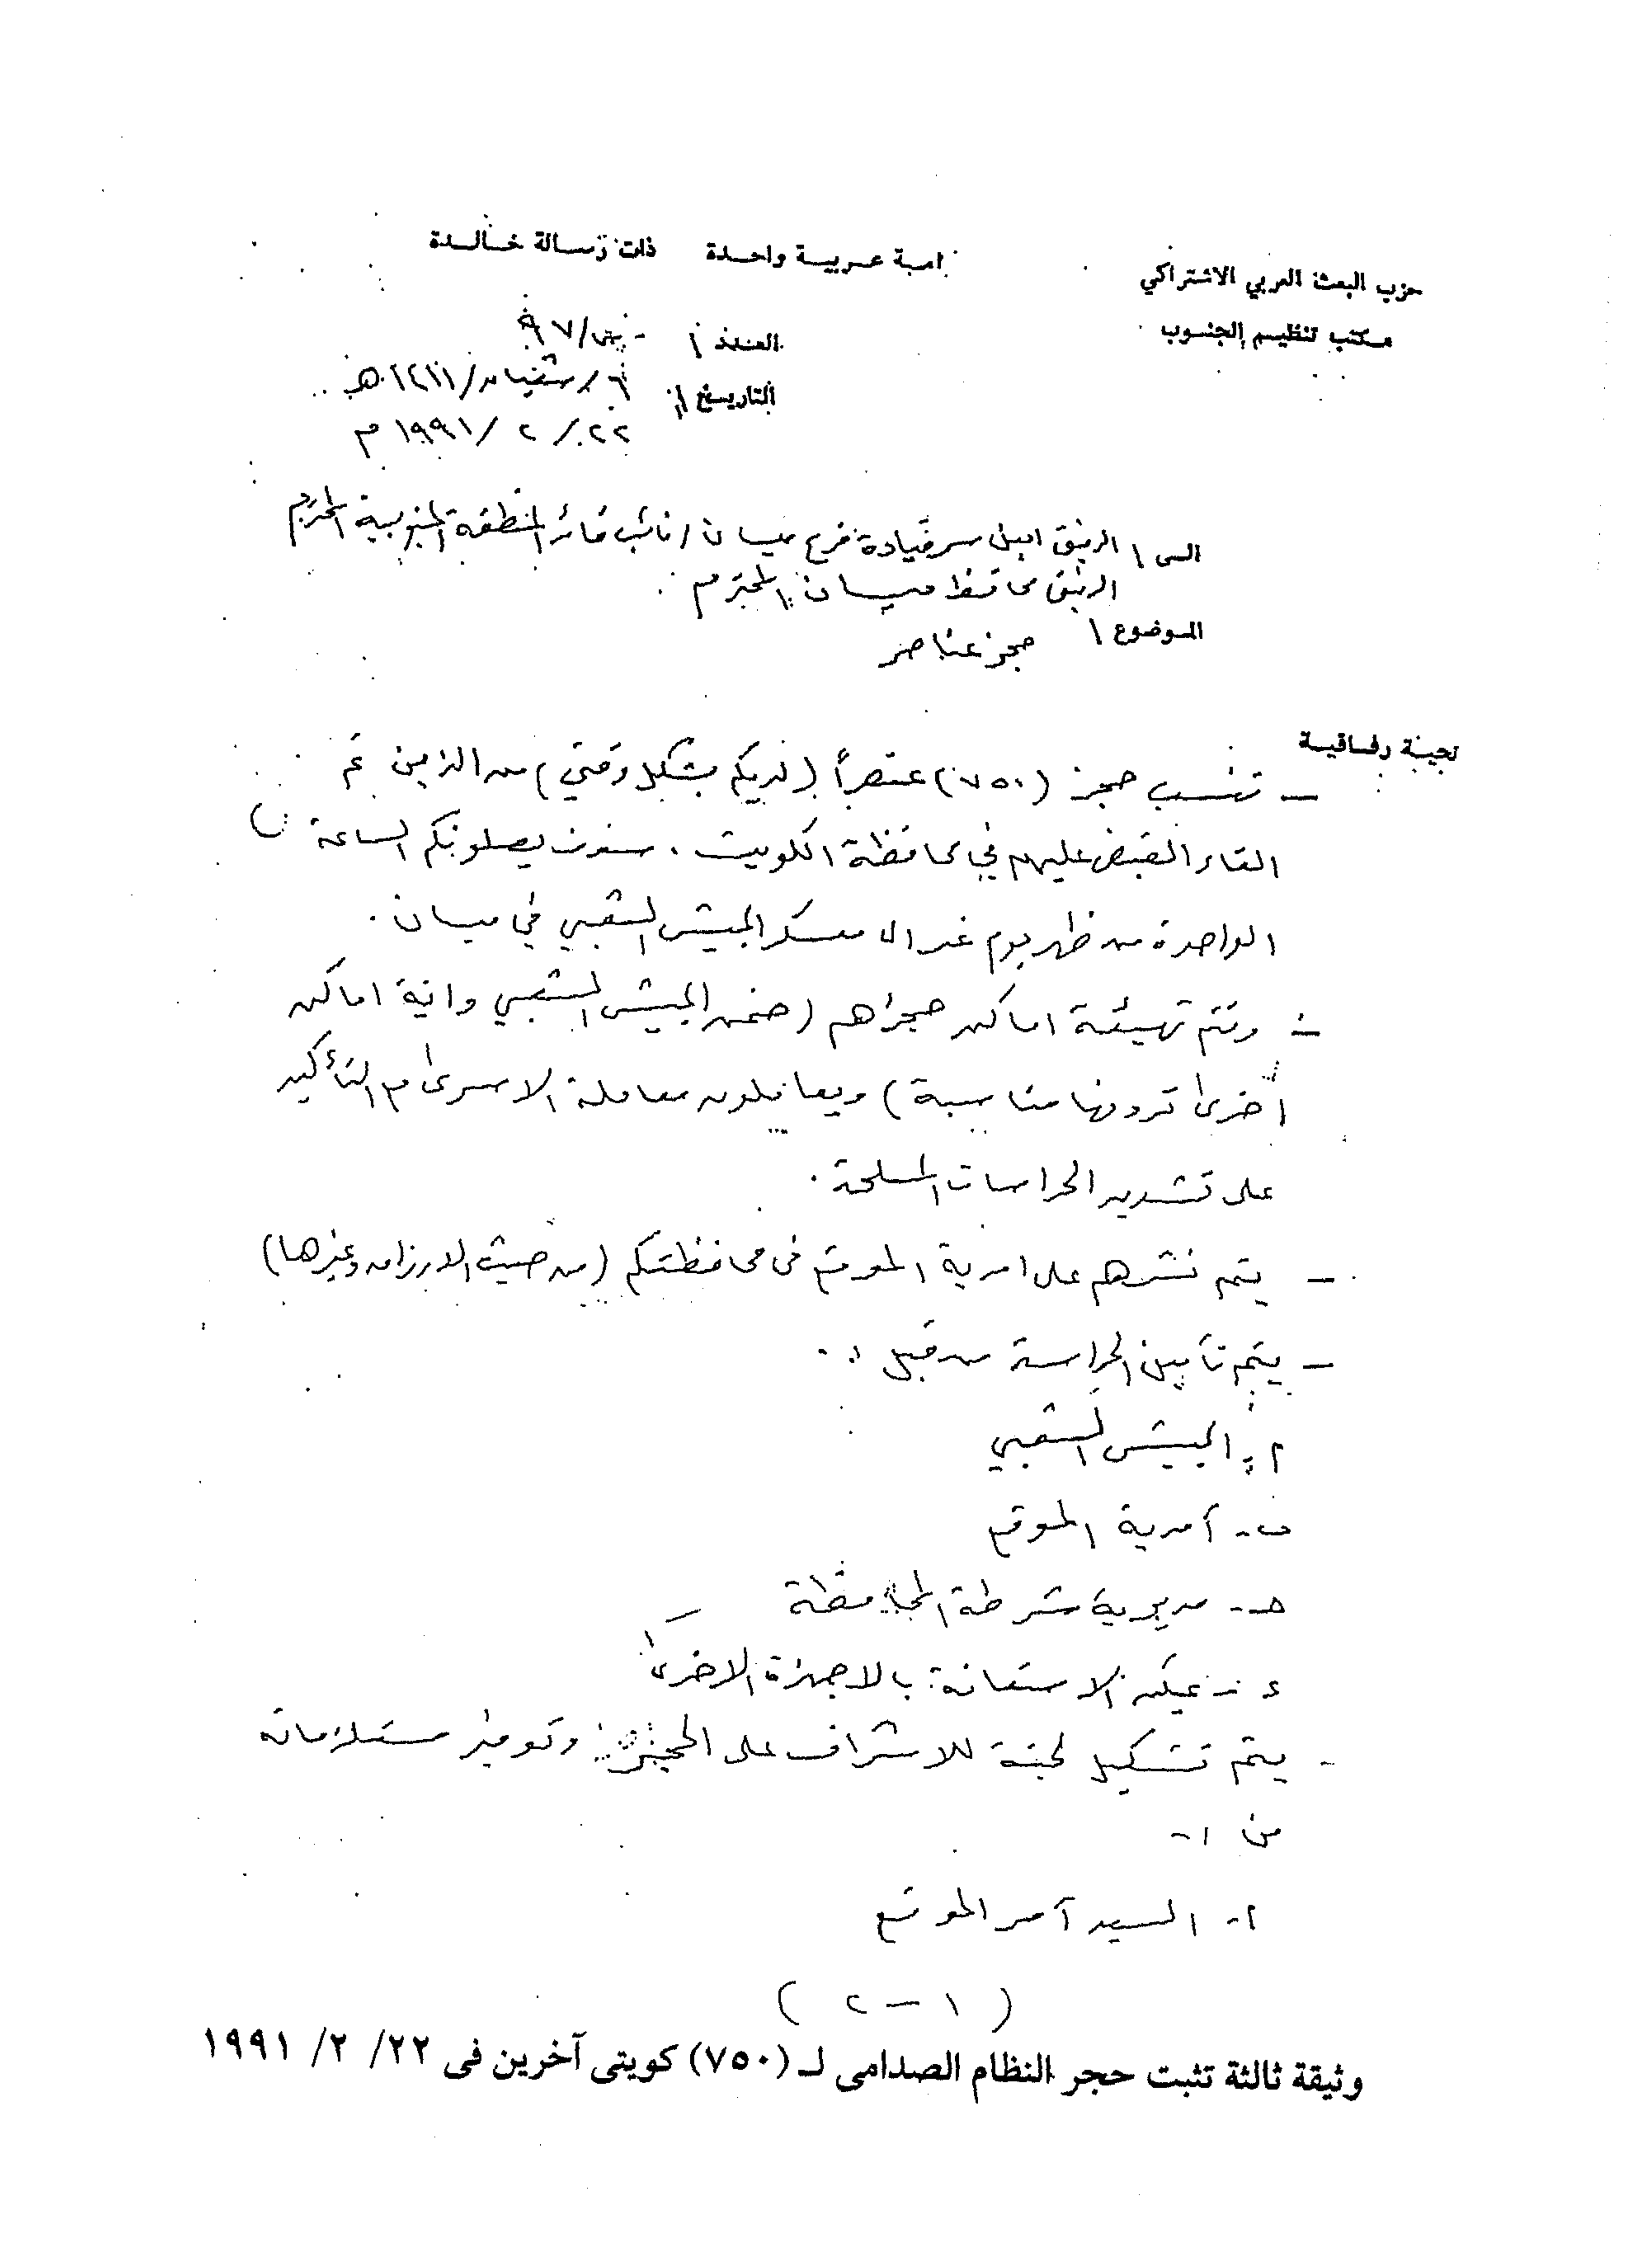 حزب البعث العربي الاشتراكي
امة عربية واحدة ذات رسالة خالدة
مكتب تنظيم الجنوب
العدد / ٩٧
التاريخ / ٦ / شعبان / ١٤١١ هـ
٢٢ / ٢ / ١٩٩١ م
الى / الرفيق امين سر قيادة فرع ميسان / نائب قائد المنطقة الجنوبية المحترم
الرفيق محافظ ميسان المحترم
الموضوع / حجز عناصر
تحية رفاقية
- تنسب حجز (٧٥٠) عنصراً (لديكم بشكل وقتي) من الذين تم
القاء القبض عليهم في محافظة الكويت . سوف يصلونكم الساعة
الواحدة من ظهر يوم غد الى معسكر الجيش الشعبي في ميسان .
- وتتم تهيئة اماكن حجزهم (ضمن الجيش الشعبي واية اماكن
أخرى ترونها مناسبة) ويعاملون معاملة الاسرى مع التأكيد
على تشديد الحراسات المسلحة .
- يتم نشرهم على امرية الموقع في محافظتكم (من حيث الارزاق وغيرها)
- يتم تأمين الحراسة من قبل :
أ - الجيش الشعبي
ب - آمرية الموقع
حـ - مديرية شرطة المحافظة
ء - يمكن الاستعانة بالاجهزة الاخرى
- يتم تشكيل لجنة للاشراف على الحجز وتوفير مستلزماته
من :-
أ - السيد آمر الموقع
( ١ - ٢ )
وثيقة ثالثة تثبت حجر النظام الصدامى لـ (٧٥٠) كويتى آخرين فى ٢٢/ ٢/ ١٩٩١